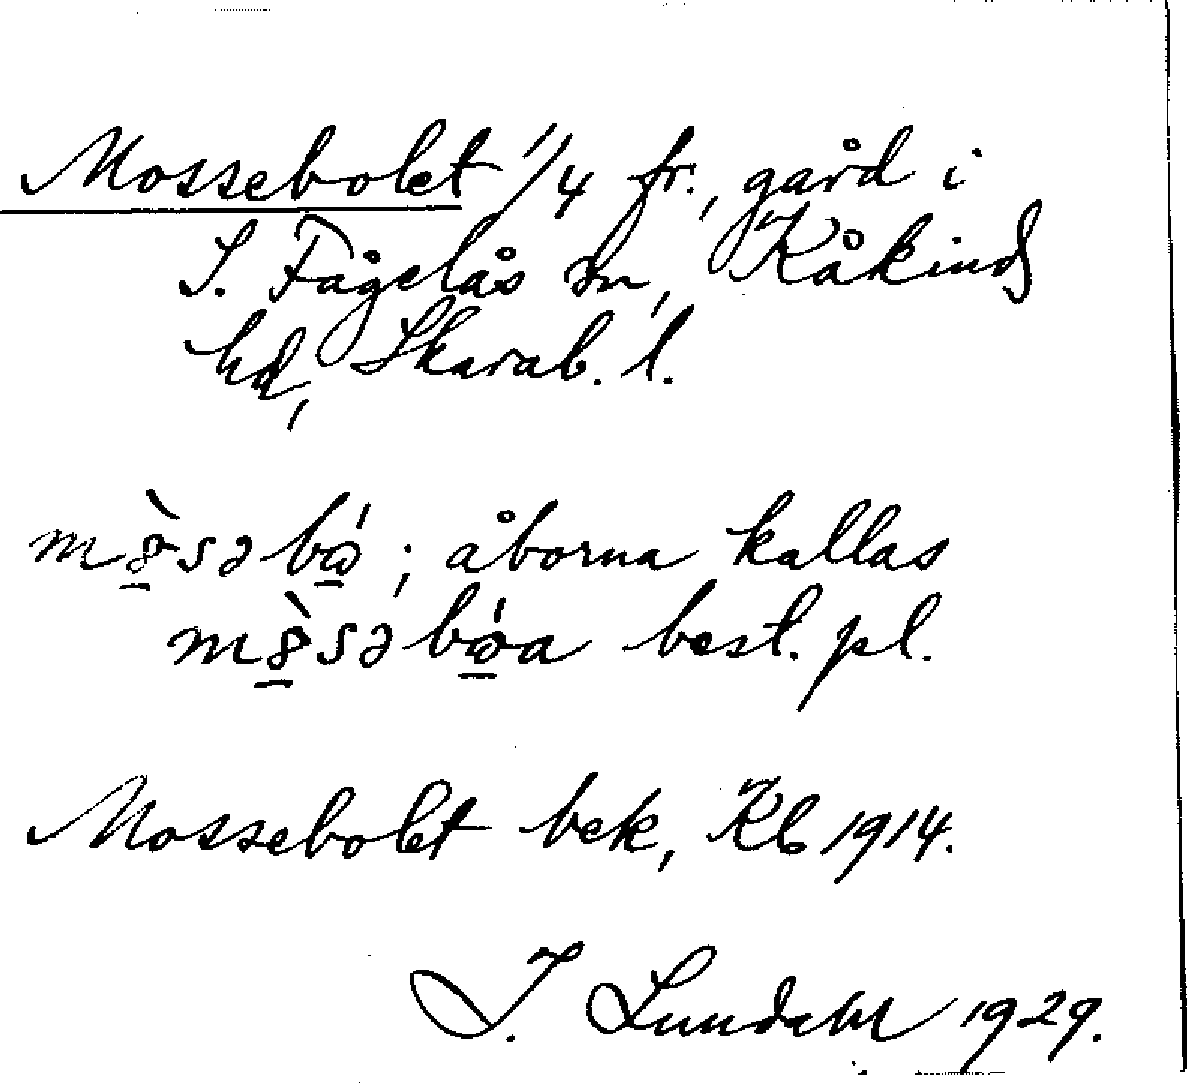 Mossebolet 1/4 fr., gård i
S. Fågelås sn, Kåkinds
hd, Skarab. l.
; åborna kallas
best. pl.
Mossebolet bek, Kb 1914.
I. Lundahl 1929.